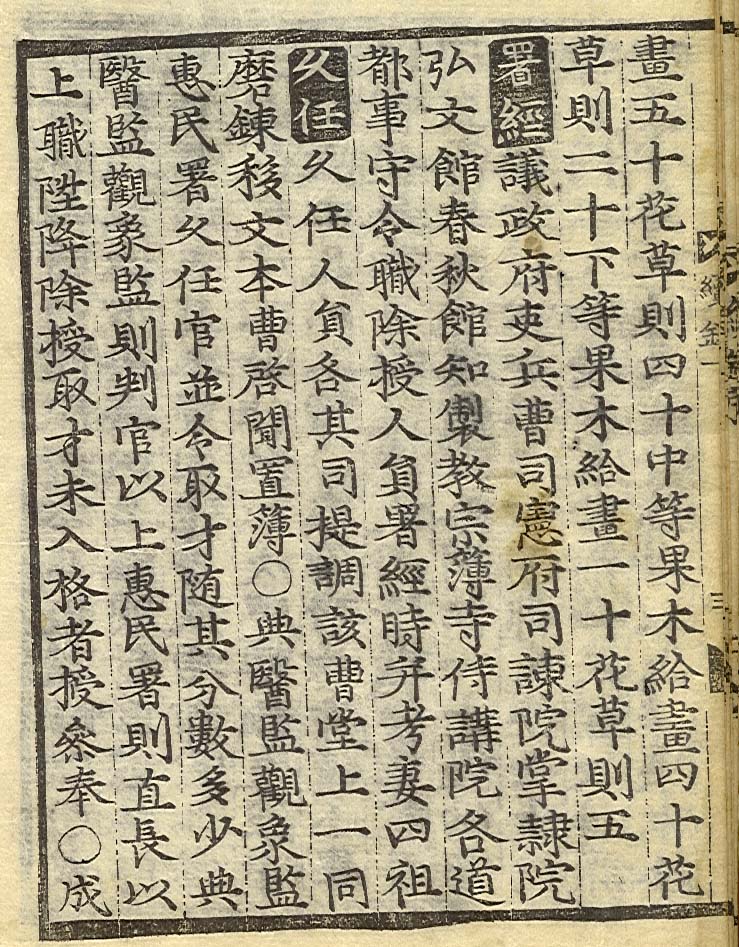 畫五十花草則四十中等果木給畫四十花
草則二十下等果木給畫一十花草則五
署經議政府吏兵曹司憲府司諫院掌隷院
弘文館春秋館知製教宗薄寺侍講院各道
都事守令職除授人負署經時幷考妻四祖
久任久任人負各其司提調該曹堂上一同
磨鍊移文本曹啓聞置簿○典醫監觀象監
惠民署久任官並令取才随其分數多少典
醫監觀象監則判官以上惠民署則直長以
上職陞降除授取才未入格者授叅奉○成